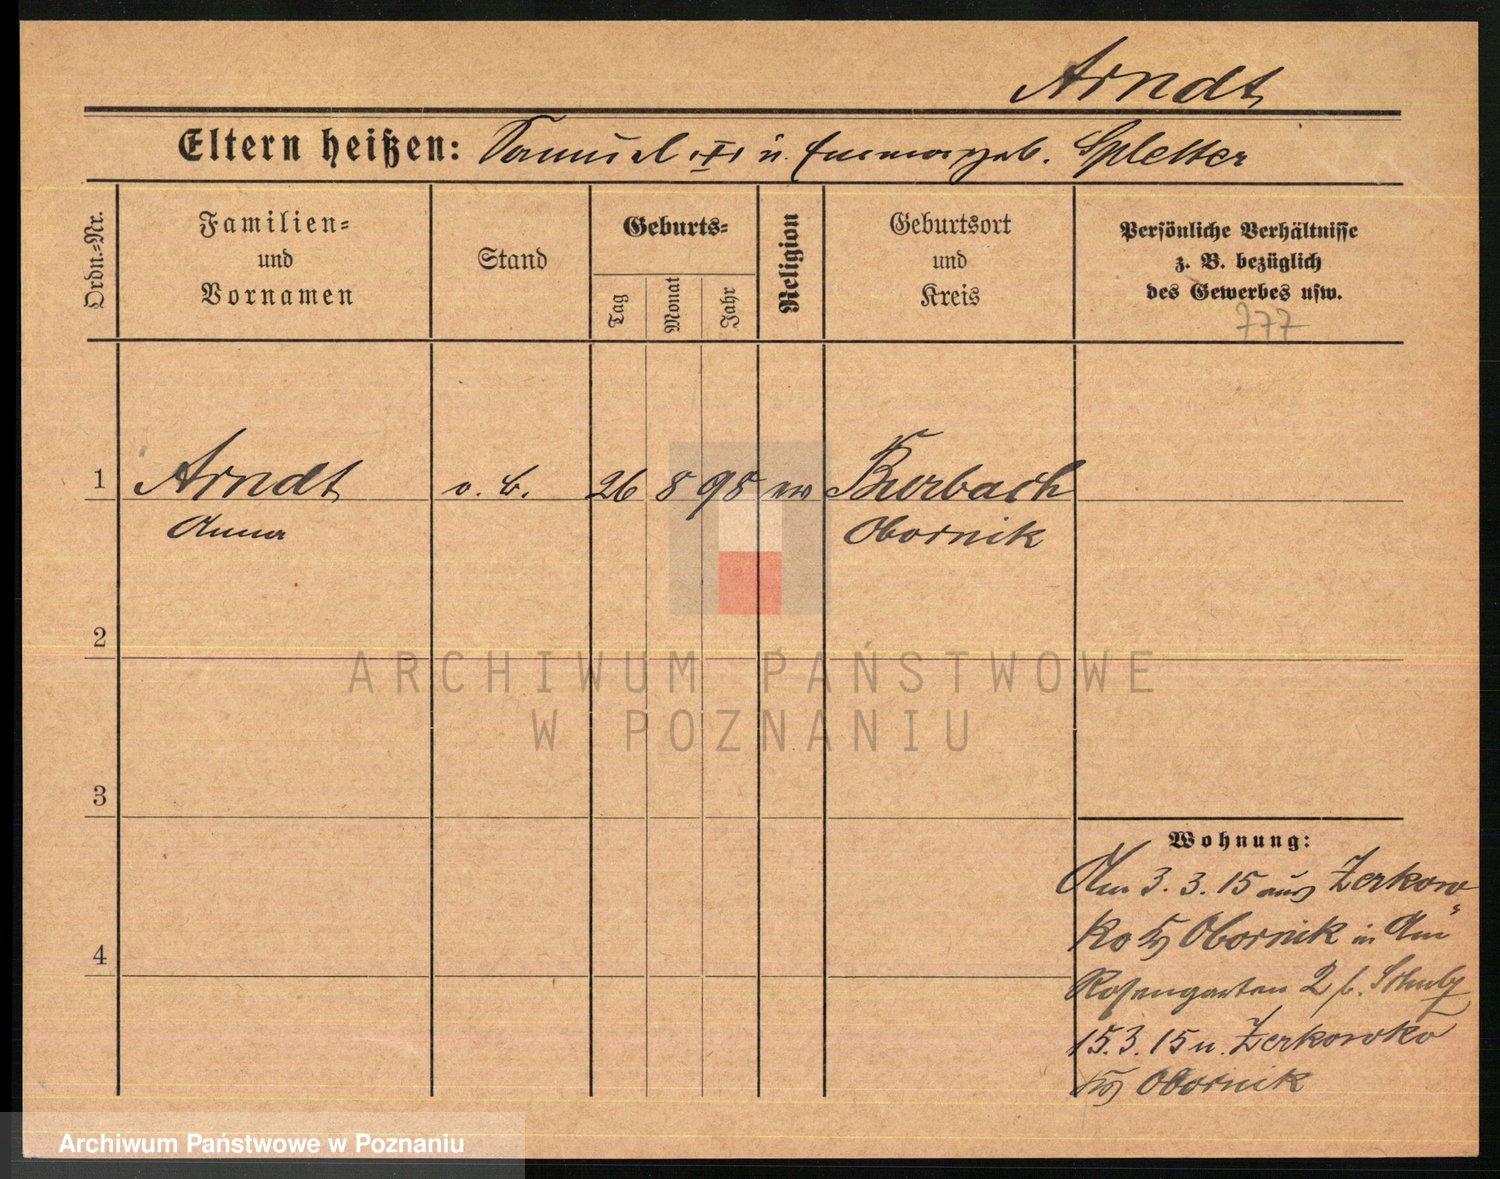 Arndt
Eltern heißen: Samuel u. Emma geb. Spletter
Ordn.-Nr.
Familien-
und
Vornamen
Stand
Geburts-
Tag
Monat
Jahr
Religion
Geburtsort
und
Kreis
Persönliche Verhältnisse
z. B. bezüglich
des Gewerbes usw.
777
1 Arndt o. b. 26 8 98 ev Burbach
Anna Obornik
2
3
4
ARCHIWUM PAŃSTWOWE
W POZNANIU
Wohnung:
3. 3. 15 aus Zerkow-
ko Obornik in
Rosengarten 2 b. Schulz
15. 3. 15 n. Zerkowko
Obornik
Archiwum Państwowe w Poznaniu